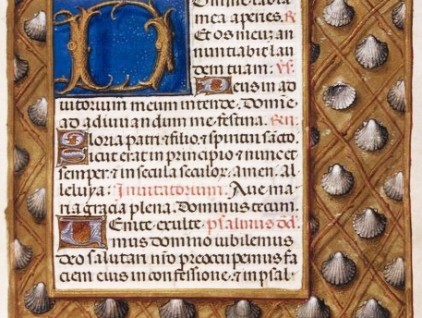 omine labia
mea aperies. R
Et os meuz an
nuntiabit lau
dem tuam. Vs.
Deus in ad
iutorium meum intende. Domi e
ad adiuvandum me festina. Rn.
Gloria patri et filio, et spiritui sācto
sicut erat in principio et nunc et
semper, et in secula seculor, amen. al
leluya: Invitatorium. Ave ma
ria gracia plena. Dominus tecum.
Venite exulte psalmus
mus domino iubilemus
deo salutari nr̄o preoccupemus fa
ciem eius in confessione, et in psal